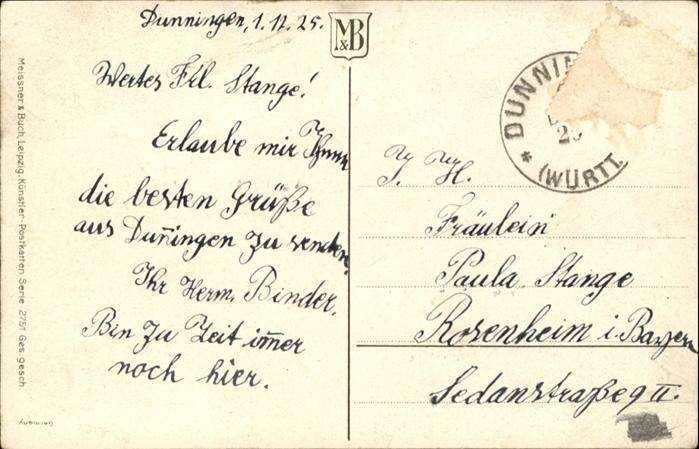 Dunningen, 1.11.25.
M&B
Wertes Frl. Stange!
Erlaube mir Ihnen
die besten Grüße
aus Duñingen zu senden.
Ihr Herm. Binder.
Bin zu Zeit im̃er
noch hier.
Meissner & Buch, Leipzig. Künstler-Postkarten Serie 2751 Ges. gesch.
Germany
DUNNIN
* (WÜRTT.
J. H.
Fräulein
Paula Stange
Rosenheim i. Bayern
Sedanstraße 9 II.